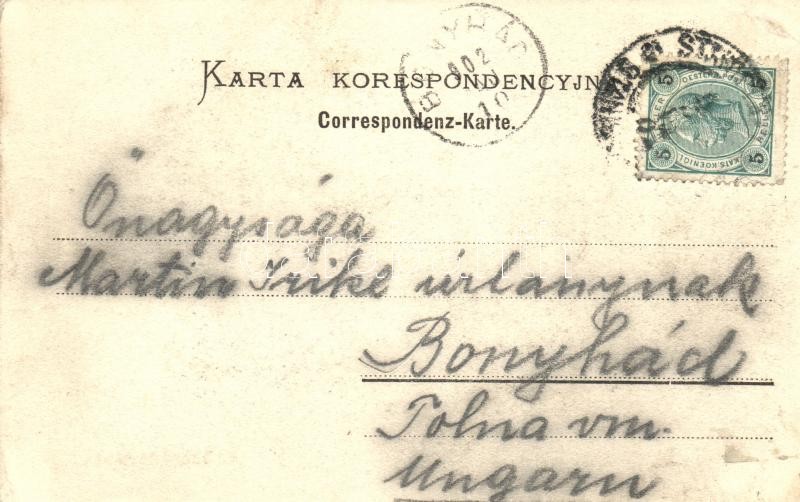 KARTA KORESPONDENCYJN
Correspondenz-Karte.
BONYHÁD
902
10
5 5
5 5
KAIS. KOENIGL
Önagysága
Martin Irike úrlanynak
Bonyhád
Tolna vm.
Ungarn